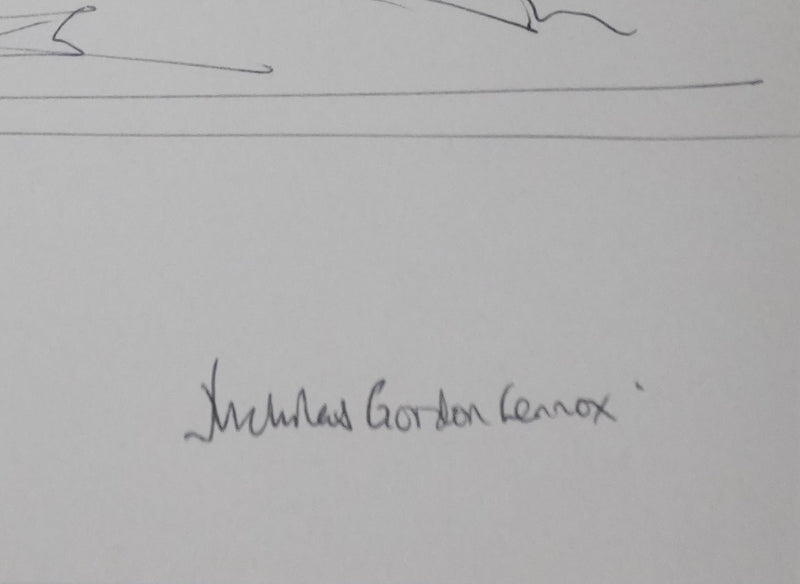 Nicholas Gordon Lennox